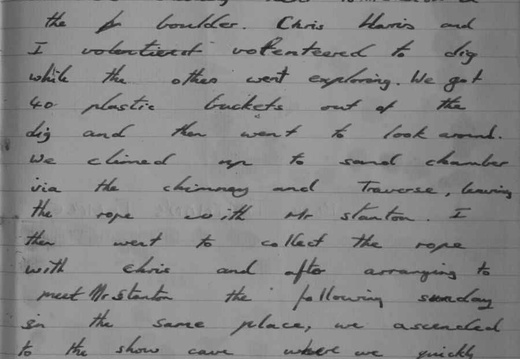 the boulder. Chris Harris and
I volentierst volenteered to dig
while the others went exploring. We got
40 plastic buckets out of the
dig and then went to look around.
We climed up to sand chamber
via the chimney and Traverse, leaving
the rope with Mr Stanton. I
then went to collect the rope
with Chris and after arranging to
meet Mr Stanton the following sunday
in the same place, we ascended
to the show cave where we quickly